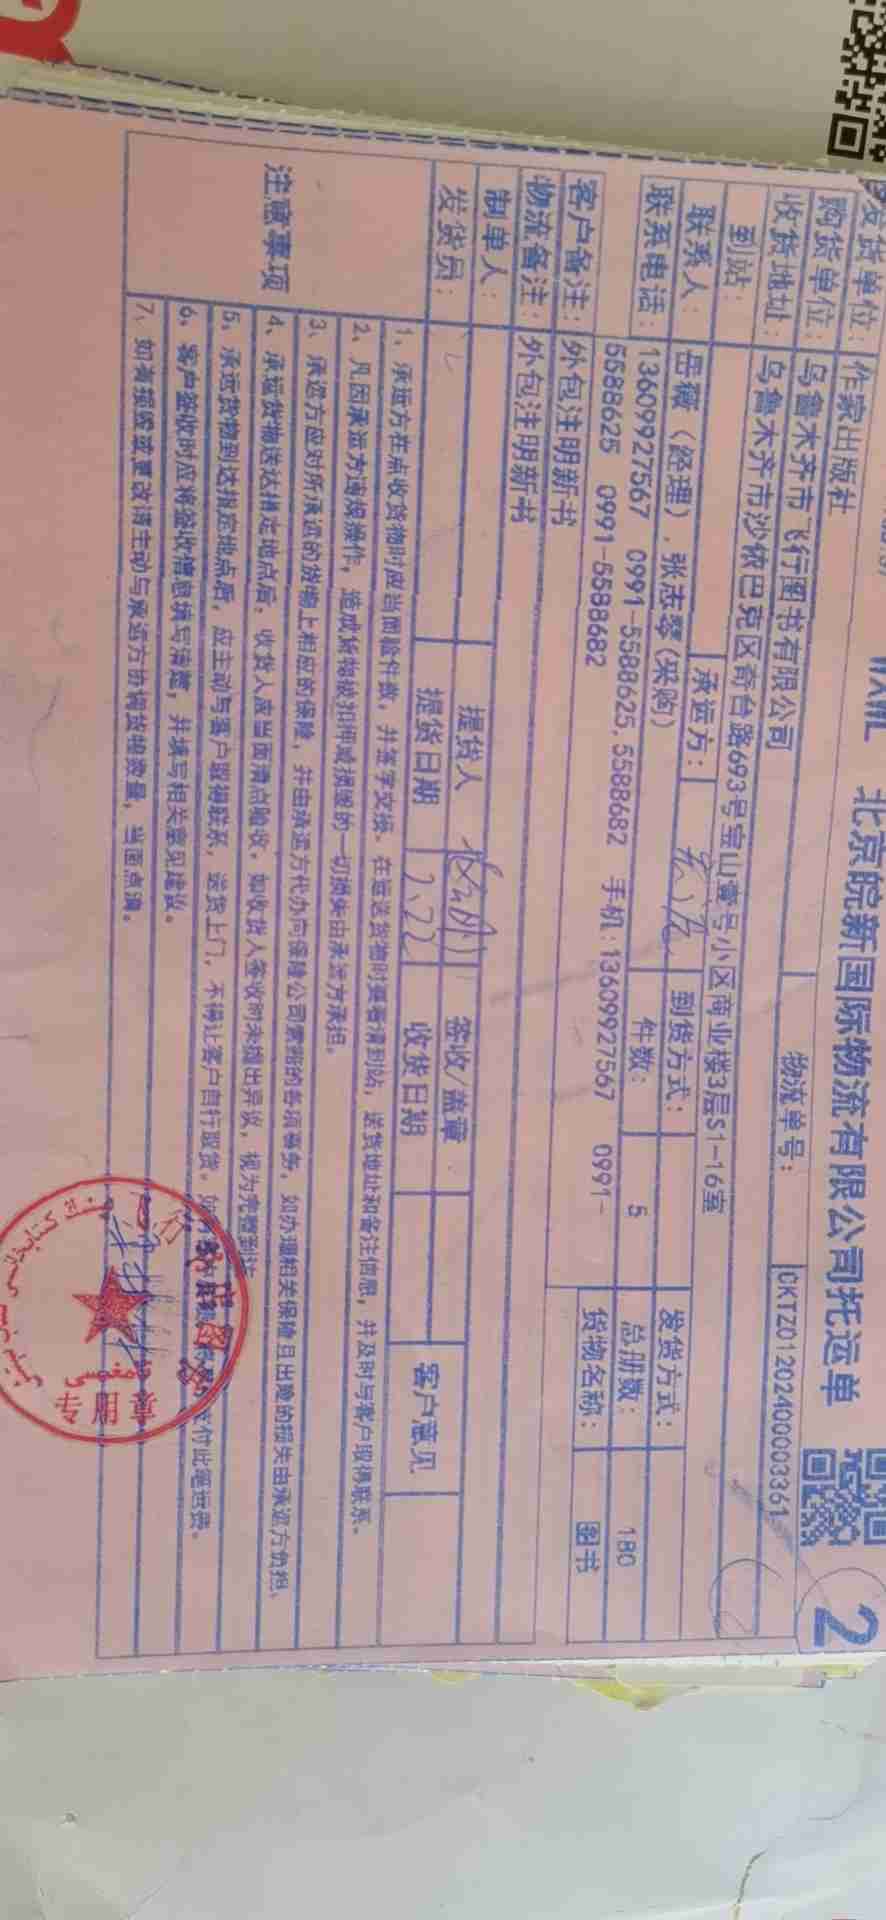 北京皖新国际物流有限公司托运单
2
发货单位: 作家出版社
物流单号: CKTZ01202400003361
购货单位: 乌鲁木齐市飞行图书有限公司
收货地址: 乌鲁木齐市沙依巴克区奇台路693号宝山壹号小区商业楼3层S1-16室
到站: 承运方: 到货方式: 发货方式:
联系人: 岳薇 (经理), 张志琴(采购) 件数: 5 总册数: 180
联系电话: 13609927567 0991-5588625,5588682 手机:13609927567 0991-
5588625 0991-5588682
货物名称: 图书
客户备注: 外包注明新书
物流备注: 外包注明新书
制单人: 提货人 签收/盖章 客户意见
发货员: 提货日期 2.22 收货日期
注意事项
1、承运方在点收货物时应当面验件数, 并签字交接。在运送货物时要看清到站, 送货地址和备注信息, 并及时与客户取得联系。
2、凡因承运方违规操作, 造成货物被扣押或损毁的一切损失由承运方承担。
3、承运方应对所承运的货物上相应的保险, 并由承运方代办向保险公司索赔的各项事务, 如办理相关保险且出险的损失由承运方负担。
4、承运货物送达指定地点后, 收货人应当面清点验收, 如收货人签收时未提出异议, 视为完整到站
5、承运货物到达指定地点后, 应主动与客户取得联系, 送货上门, 不得让客户自行取货。 支付此笔运费。
6、客户签收时应将签收信息填写清楚, 并填写相关意见建议。
7、如有损毁或更改请主动与承运方协调货物数量, 当面点清。
专用章